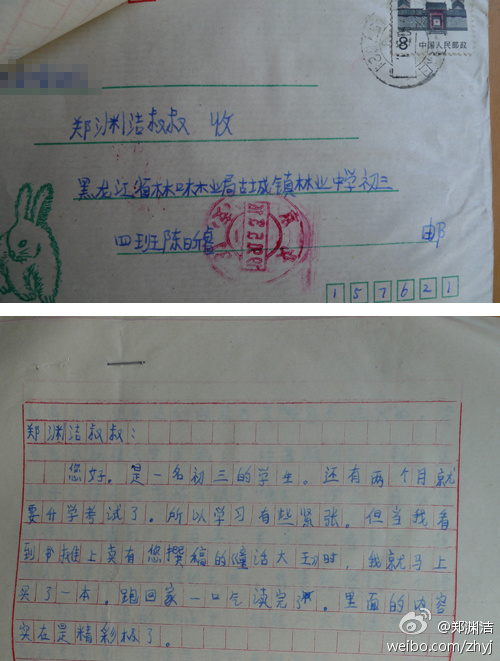 8
中国人民邮政
郑渊洁叔叔 收
黑龙江省林口林业局古城镇林业中学初三
四班陈昕
邮
157621
郑渊洁叔叔：
您好。是一名初三的学生。还有两个月就
要升学考试了。所以学习有些紧张。但当我看
到书摊上卖有您撰稿的《童话大王》时，我就马上
买了一本。跑回家一口气读完了。里面的内容
实在是精彩极了。
@郑渊洁
weibo.com/zhyj